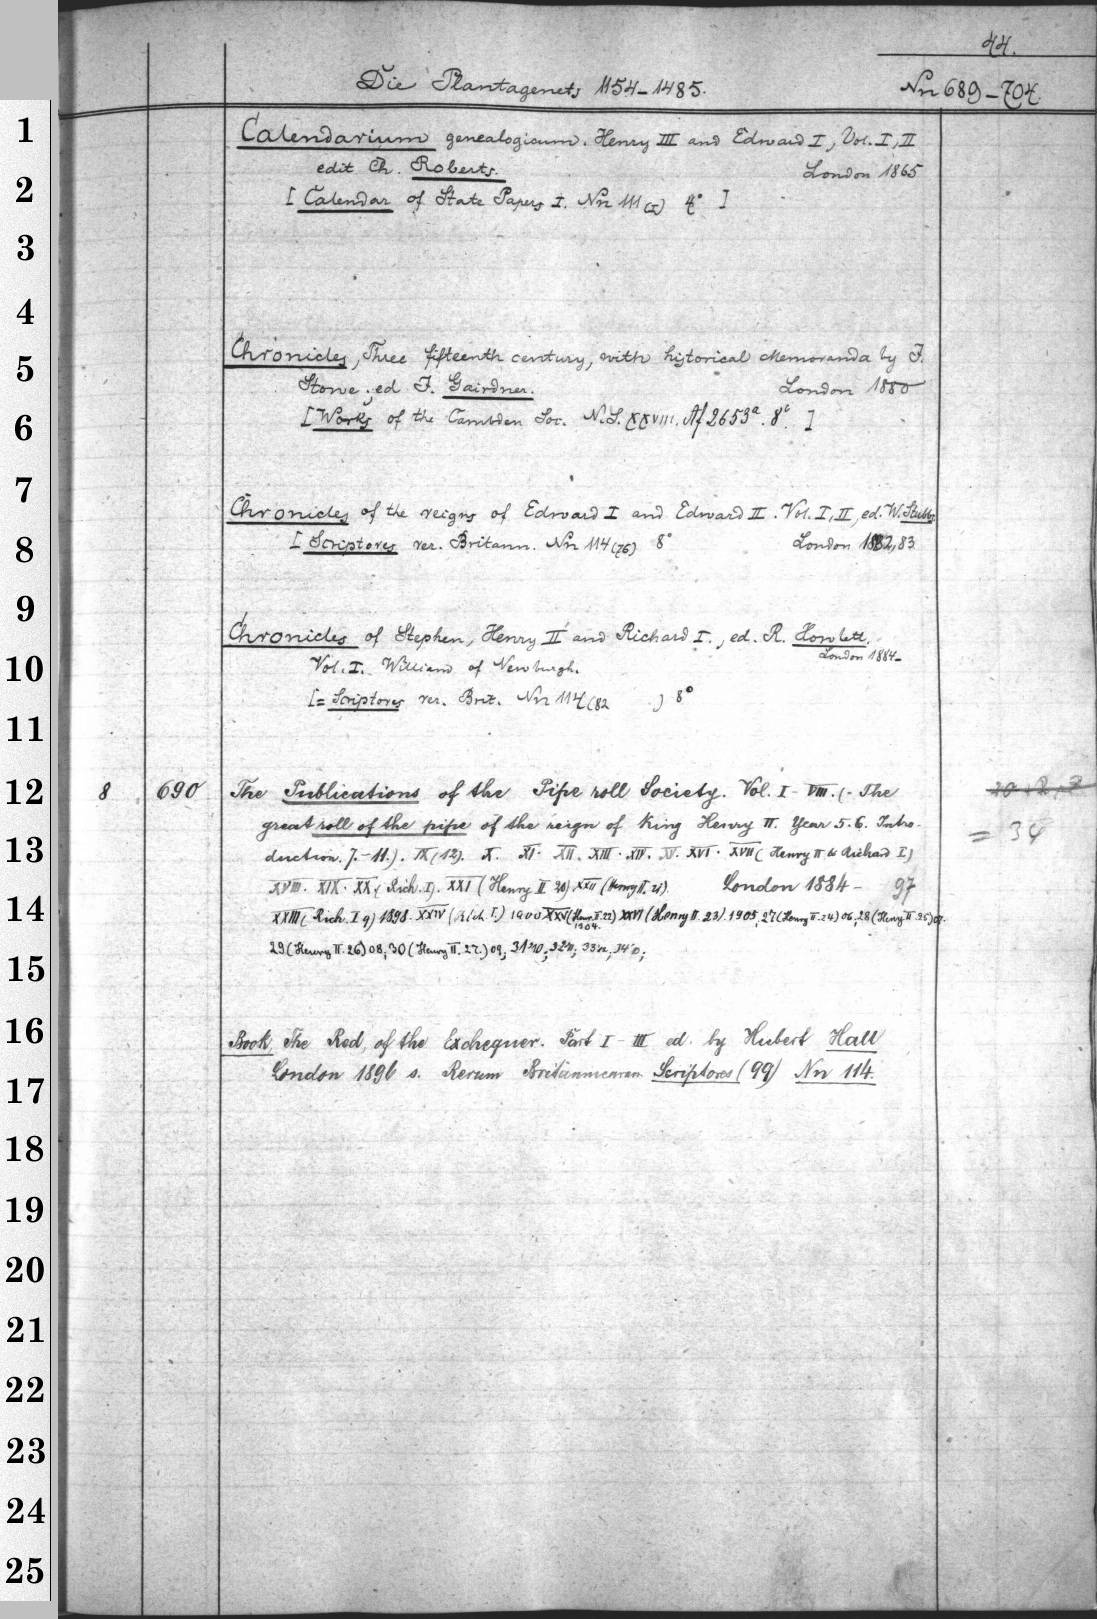 44.
Die Plantagenets 1154-1485.
Nn 689-704.
1
Calendarium genealogicum. Henry III and Edward I, Vol. I, II
edit Ch. Roberts. London 1865
2
[ Calendar of State Papers I. Nn 111 (I) 4° ]
3
4
5
Chronicles, Three fifteenth century, with historical Memoranda by J.
Stowe, ed J. Gairdner. London 1880
6
[ Works of the Cambden Soc. N.S. XXVIII. Af 2653a. 8°. ]
7
Chronicles of the reigns of Edward I and Edward II. Vol. I, II, ed. W. Stubbs
8
[ Scriptores rer. Britann. Nn 114 (76) 8° London 1882,83
9
Chronicles of Stephen, Henry II and Richard I., ed. R. Howlett.
London 1884-
10
Vol. I. William of Newburgh.
[= Scriptores rer. Brit. Nn 114 (82 ) 8°
11
12
8 690 The Publications of the Pipe roll Society. Vol. I-VIII. (- The
great roll of the pipe of the reign of King Henry II. Year 5. 6. Intro-
= 34
13
duction. 7.-11.). IX (12). X. XI. XII. XIII. XIV. XV. XVI. XVII (Henry II & Richard I)
XVIII. XIX. XX (Rich. I). XXI (Henry II 20) XXII (Henry II. 21). London 1884- 97
14
XXIII (Rich. I 9) 1898. XXIV (Rich. I.) 1900 XXV (Henr. II. 22) 1904. XXVI (Henry II. 23). 1905, 27 (Henry II. 24) 06, 28 (Henry II. 25) 07.
29 (Henry II. 26) 08, 30 (Henry II. 27.) 09,
15
16
Book, The Red, of the Exchequer. Part I-III ed. by Hubert Hall
London 1896 s. Rerum Britannicarum Scriptores (99) Nn 114.
17
18
19
20
21
22
23
24
25